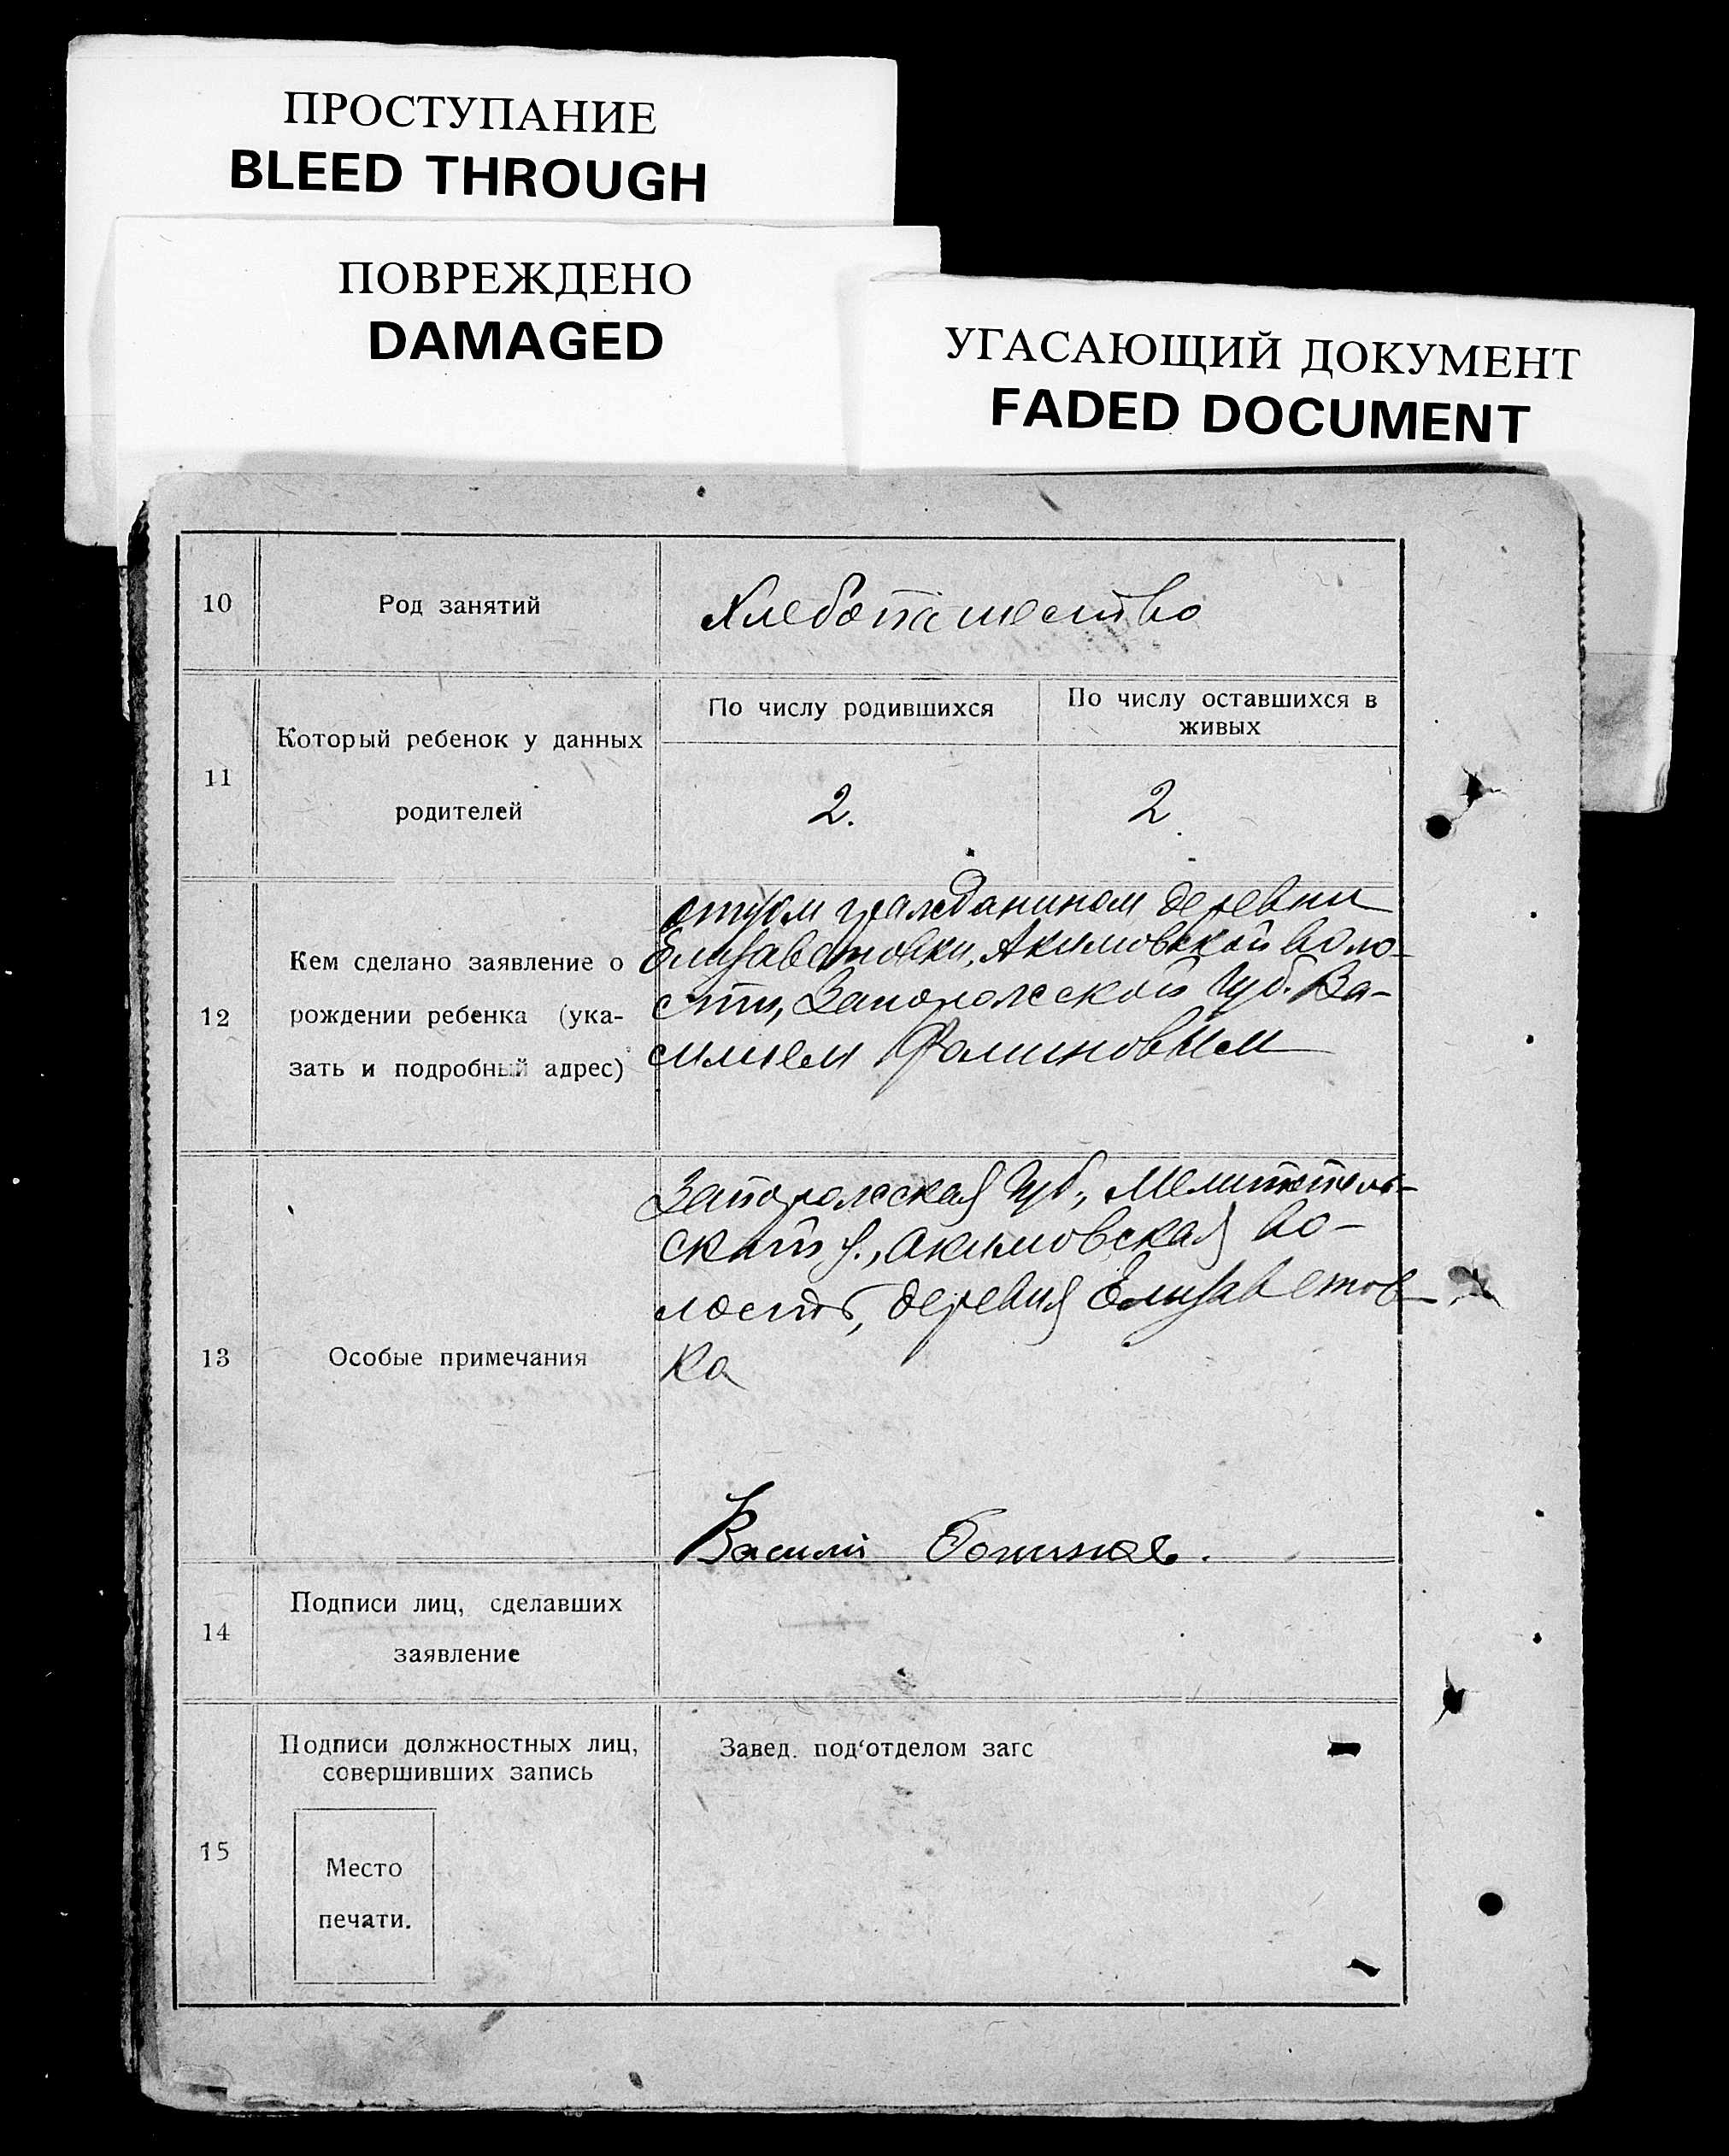 ПРОСТУПАНИЕ
BLEED THROUGH
ПОВРЕЖДЕНО
DAMAGED
УГАСАЮЩИЙ ДОКУМЕНТ
FADED DOCUMENT
10
Род занятий
Хлебопашество
11
Который ребенок у данных
родителей
По числу родившихся
По числу оставшихся в
живых
2.
2
12
Кем сделано заявление о
рождении ребенка (ука-
зать и подробный адрес)
отцом гражданином деревни
Елизаветовки, Акимовской воло-
сти, Запорожской губ. Ва-
силием Фоминовым
13
Особые примечания
Запорожская губ., Мелитополь-
ский у., Акимовская во-
лость, деревня Елизаветов-
ка
Василий
14
Подписи лиц, сделавших
заявление
15
Подписи должностных лиц,
совершивших запись
Место
печати.
Завед. под'отделом загс